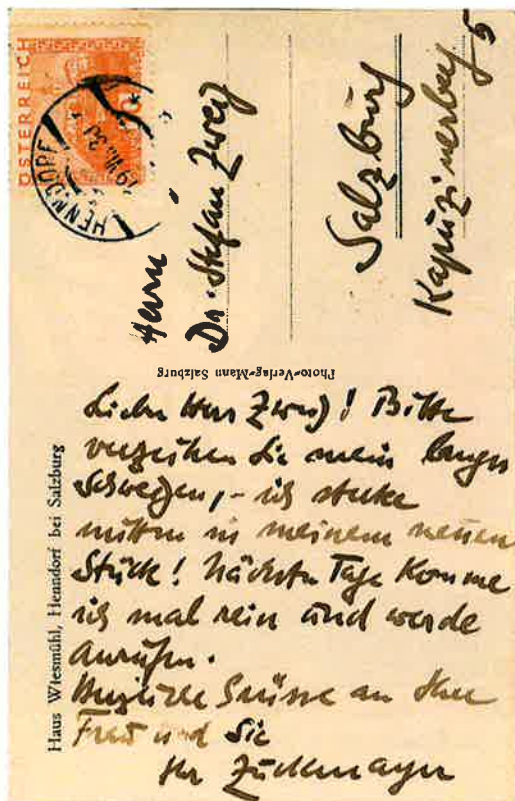 ÖSTERREICH
HENNDORF
Herrn
Dr. Stefan Zweig
Salzburg
Kapuzinerberg 5
Photo-Verlag-Mann Salzburg
Haus Wiesmühl, Henndorf bei Salzburg
Lieber Herr Zweig! Bitte
verzeihen Sie mein langes
Schweigen, – ich stecke
mitten in meinem neuen
Stück! Nächste Tage komme
ich mal rein und werde
anrufen.
Herzliche Grüsse an Ihre
Frau und Sie
Ihr Zuckmayer